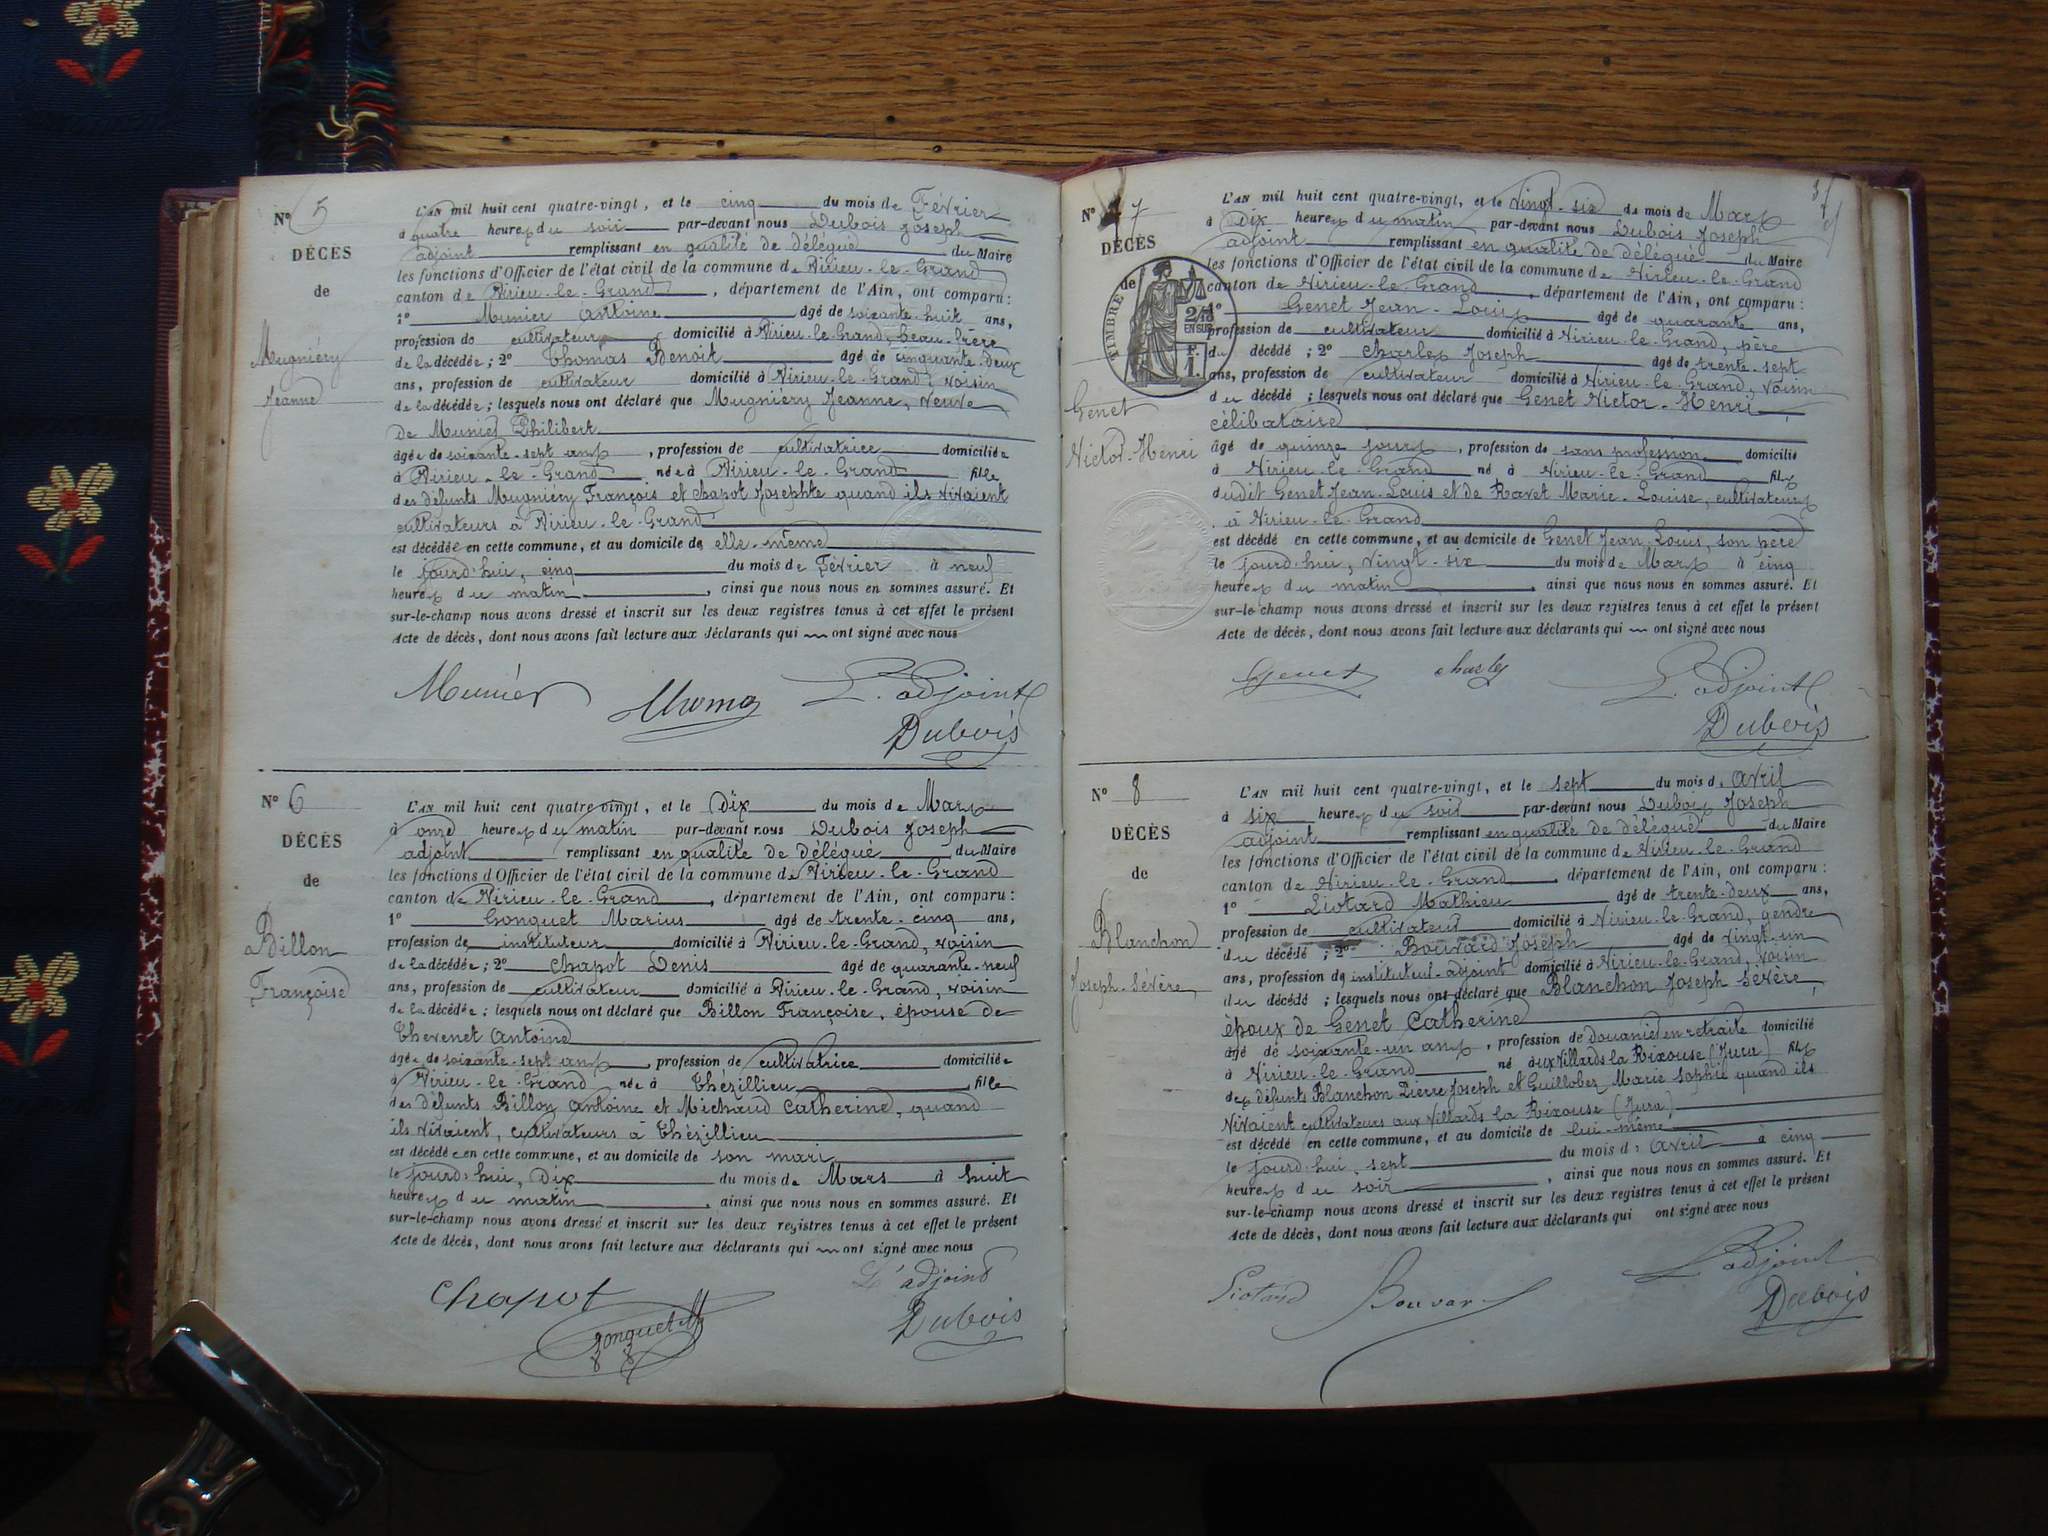 N° 5
DÉCÈS
de
Mugniéry
Jeanne
L'AN mil huit cent quatre-vingt, et le cinq du mois de Février
à quatre heures du soir par-devant nous Dubois Joseph
adjoint remplissant en qualité de délégué du Maire
les fonctions d'Officier de l'état civil de la commune de Virieu-le-Grand
canton de Virieu-le-Grand, département de l'Ain, ont comparu:
1° Munier Antoine âgé de soixante-huit ans,
profession de cultivateur domicilié à Virieu-le-Grand, beau-frère
de la décédée; 2° Thomas Benoit âgé de cinquante-deux
ans, profession de cultivateur domicilié à Virieu-le-Grand, voisin
de la décédée; lesquels nous ont déclaré que Mugniéry Jeanne, veuve
de Munier Philibert
âgée de soixante-sept ans, profession de cultivatrice domiciliée
à Virieu-le-Grand née à Virieu-le-Grand fille
des défunts Mugniéry François et Chapot Josephte quand ils vivaient
cultivateurs à Virieu-le-Grand
est décédée en cette commune, et au domicile de elle-même
le jourd'hui, cinq du mois de Février à neuf
heures du matin, ainsi que nous nous en sommes assuré. Et
sur-le-champ nous avons dressé et inscrit sur les deux registres tenus à cet effet le présent
Acte de décès, dont nous avons fait lecture aux déclarants qui ont signé avec nous
Munier Thomas L'adjoint
Dubois
N° 6
DÉCÈS
de
Billon
Françoise
L'AN mil huit cent quatre-vingt, et le Dix du mois de Mars
à onze heures du matin par-devant nous Dubois Joseph
adjoint remplissant en qualité de délégué du Maire
les fonctions d'Officier de l'état civil de la commune de Virieu-le-Grand
canton de Virieu-le-Grand, département de l'Ain, ont comparu:
1° Gonguet Marius âgé de trente-cinq ans,
profession de instituteur domicilié à Virieu-le-Grand, voisin
de la décédée; 2° Chapot Denis âgé de quarante-neuf
ans, profession de cultivateur domicilié à Virieu-le-Grand, voisin
de la décédée; lesquels nous ont déclaré que Billon Françoise, épouse de
Thevenet Antoine
âgée de soixante-sept ans, profession de cultivatrice domiciliée
à Virieu-le-Grand née à Thézillieu fille
des défunts Billon Antoine et Michaud Catherine, quand
ils vivaient, cultivateurs à Thézillieu
est décédée en cette commune, et au domicile de son mari
le jourd'hui, Dix du mois de Mars à huit
heures du matin, ainsi que nous nous en sommes assuré. Et
sur-le-champ nous avons dressé et inscrit sur les deux registres tenus à cet effet le présent
Acte de décès, dont nous avons fait lecture aux déclarants qui ont signé avec nous
Chapot L'adjoint
Gonguet M Dubois
N° 7
DÉCÈS
de
TIMBRE
2/10
EN SUS
1 F.
Genet
Victor-Henri
L'AN mil huit cent quatre-vingt, et le vingt-six du mois de Mars
à Dix heures du matin par-devant nous Dubois Joseph
adjoint remplissant en qualité de délégué du Maire
les fonctions d'Officier de l'état civil de la commune de Virieu-le-Grand
canton de Virieu-le-Grand, département de l'Ain, ont comparu:
1° Genet Jean-Louis âgé de quarante ans,
profession de cultivateur domicilié à Virieu-le-Grand, père
du décédé; 2° Charles Joseph âgé de trente-sept
ans, profession de cultivateur domicilié à Virieu-le-Grand, voisin
du décédé; lesquels nous ont déclaré que Genet Victor-Henri
célibataire
âgé de quinze jours, profession de sans profession domicilié
à Virieu-le-Grand né à Virieu-le-Grand fils
dudit Genet Jean-Louis et de Ravet Marie-Louise, cultivateurs
à Virieu-le-Grand
est décédé en cette commune, et au domicile de Genet Jean-Louis, son père
le jourd'hui, vingt-six du mois de Mars à cinq
heures du matin, ainsi que nous nous en sommes assuré. Et
sur-le-champ nous avons dressé et inscrit sur les deux registres tenus à cet effet le présent
Acte de décès, dont nous avons fait lecture aux déclarants qui ont signé avec nous
Genet Charles L'adjoint
Dubois
N° 8
DÉCÈS
de
Blanchon
Joseph-Sévère
L'AN mil huit cent quatre-vingt, et le sept du mois d'Avril
à six heures du soir par-devant nous Dubois Joseph
adjoint remplissant en qualité de délégué du Maire
les fonctions d'Officier de l'état civil de la commune de Virieu-le-Grand
canton de Virieu-le-Grand, département de l'Ain, ont comparu:
1° Liotard Mathieu âgé de trente-deux ans,
profession de cultivateur domicilié à Virieu-le-Grand, gendre
du décédé; 2° Bouvard Joseph âgé de vingt-un
ans, profession de instituteur-adjoint domicilié à Virieu-le-Grand, voisin
du décédé; lesquels nous ont déclaré que Blanchon Joseph Sévère,
époux de Genet Catherine
âgé de soixante-un ans, profession de douanier en retraite domicilié
à Virieu-le-Grand né aux Villards la Rixouse (Jura) fils
des défunts Blanchon Pierre Joseph et Guillobez Marie Sophie quand ils
vivaient cultivateurs aux Villards la Rixouse (Jura)
est décédé en cette commune, et au domicile de lui-même
le jourd'hui, sept du mois d'Avril à cinq
heures du soir, ainsi que nous nous en sommes assuré. Et
sur-le-champ nous avons dressé et inscrit sur les deux registres tenus à cet effet le présent
Acte de décès, dont nous avons fait lecture aux déclarants qui ont signé avec nous
Liotard Bouvard L'adjoint
Dubois